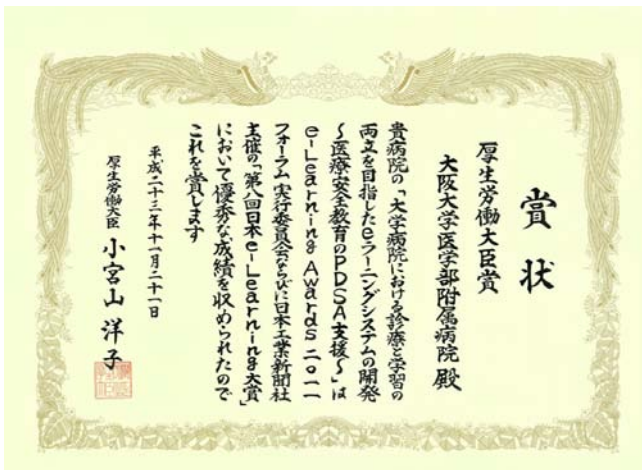 賞状
厚生労働大臣賞
大阪大学医学部附属病院 殿
貴病院の「大学病院における診療と学習の
両立を目指したeラーニングシステムの開発
〜医療安全教育のPDSA支援〜」は
e-Learning Awards 二〇一一
フォーラム実行委員会ならびに日本工業新聞社
主催の「第八回日本e-Learning大賞」
において優秀な成績を収められたので
これを賞します
平成二十三年十一月二十一日
厚生労働大臣 小宮山 洋子